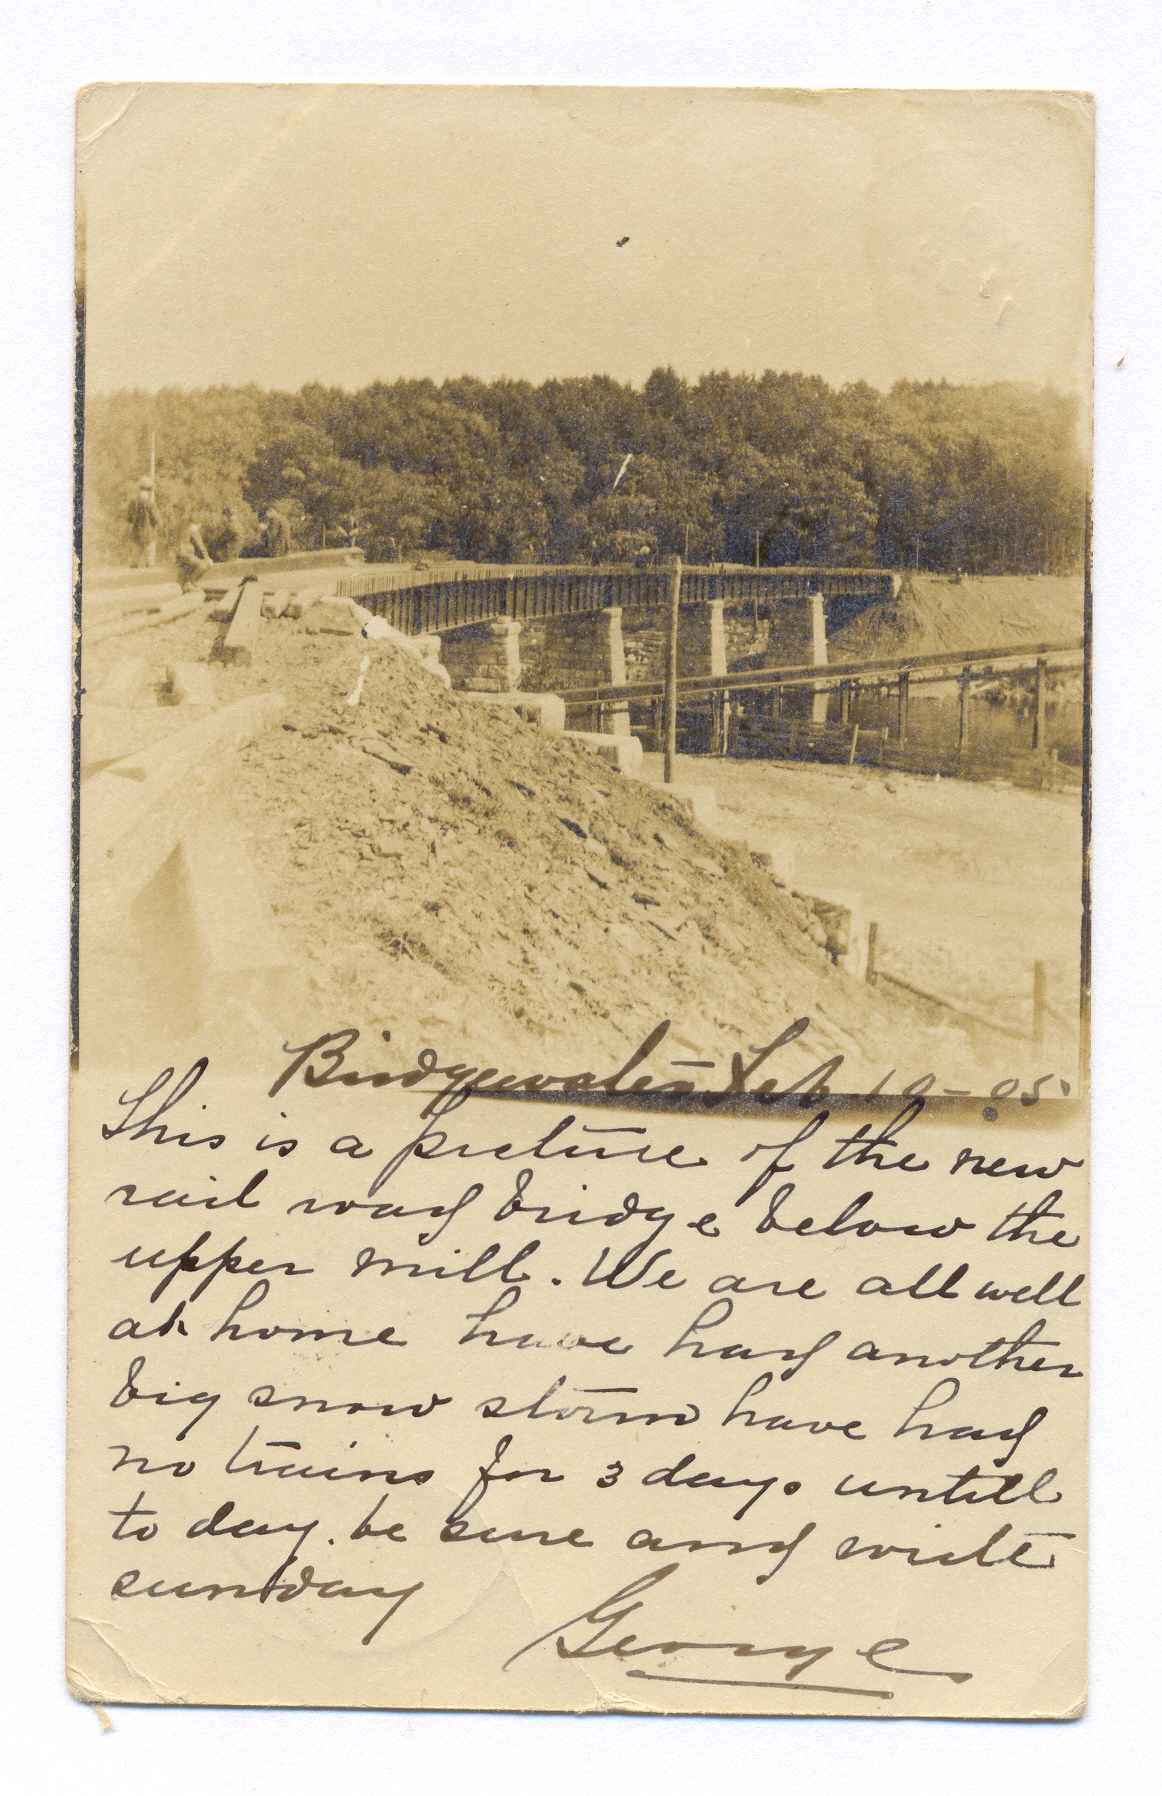 Bridgewater Feb 10-05.
This is a picture of the new
rail way bridge below the
upper mill. We are all well
at home have had another
big snow storm have had
no trains for 3 days untill
to day. be sure and write
sunday
George